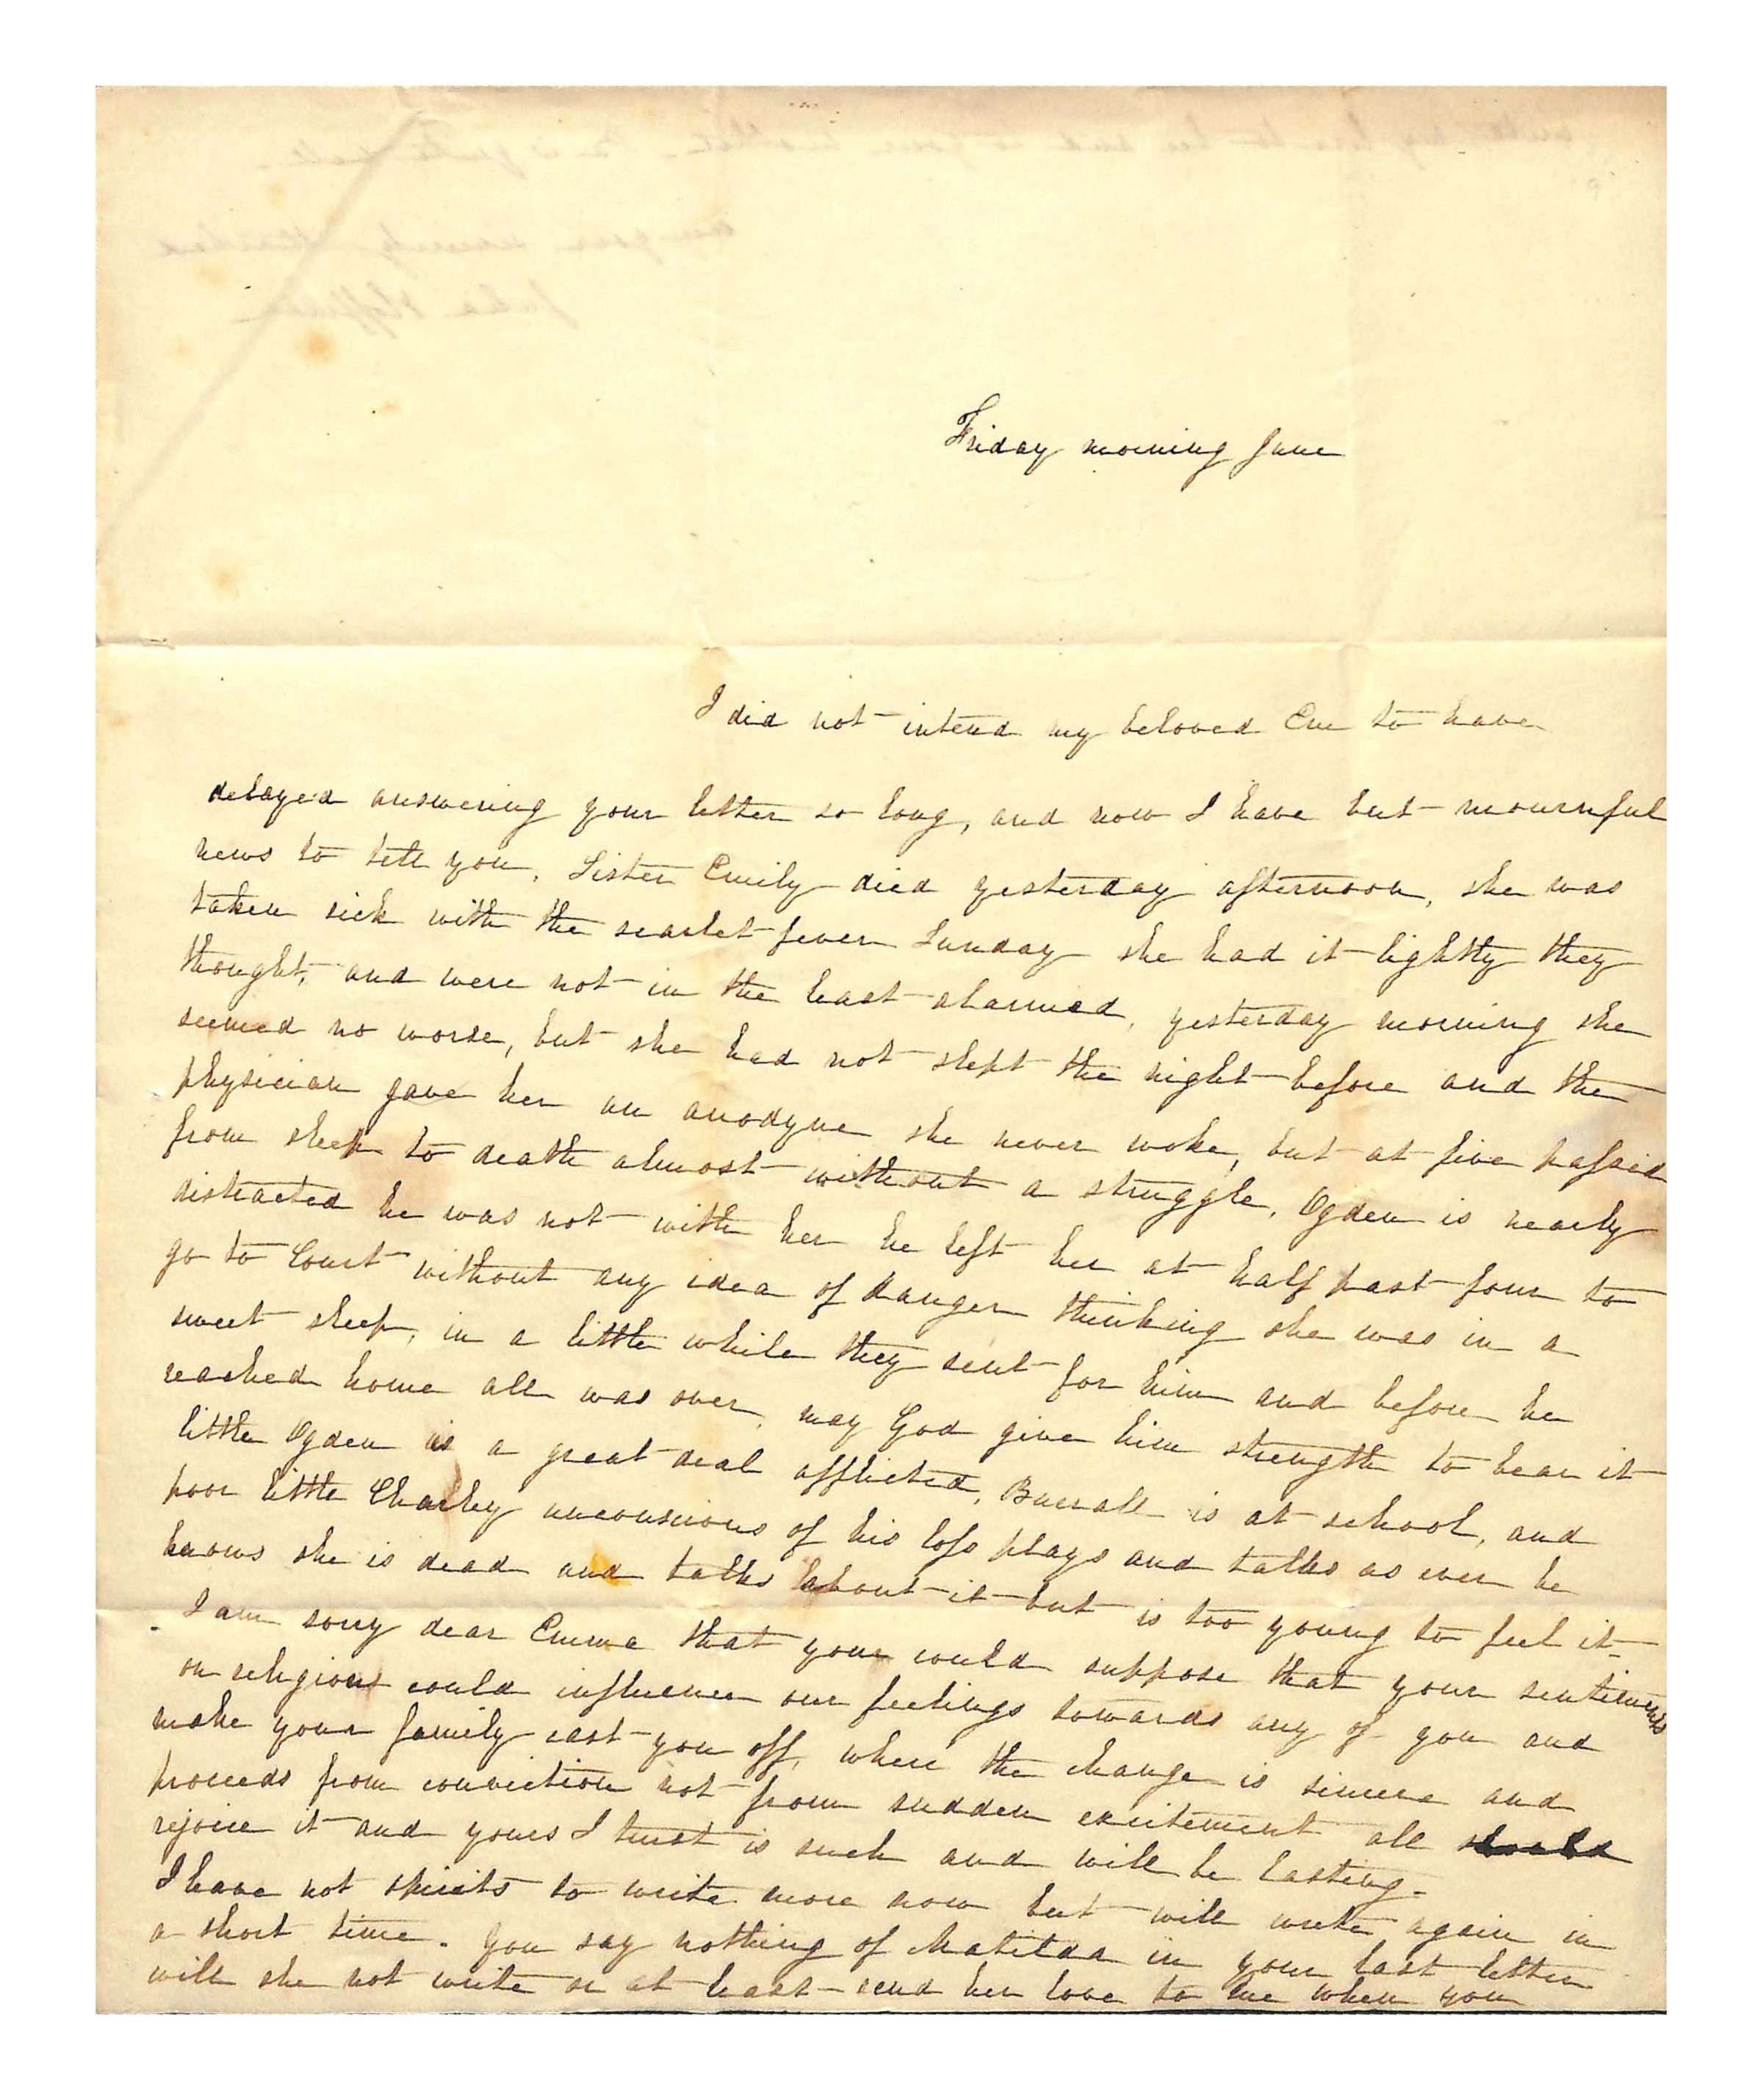 Friday morning June
I did not intend my beloved Em to have
delayed answering your letter so long, and now I have but mournful
news to tell you, Sister Emily died yesterday afternoon, she was
taken sick with the scarlet fever Sunday she had it lightly they
thought, and were not in the least alarmed, yesterday morning she
seemed no worse, but she had not slept the night before and the
physician gave her an anodyne she never woke, but at five passed
from sleep to death almost without a struggle, Ogden is nearly
distracted he was not with her he left her at half past four to
go to Court without any idea of danger thinking she was in a
sweet sleep, in a little while they sent for him and before he
reached home all was over, may God give him strength to bear it
little Ogden is a great deal afflicted, Burrall is at school, and
poor little Charley unconscious of his loss plays and talks as ever he
knows she is dead and talks about it but is too young to feel it
I am sorry dear Emma that you could suppose that your sentiments
on religion could influence our feelings towards any of you and
make your family cast you off, when the change is sincere and
proceeds from conviction not from sudden excitement all should
rejoice it and yours I trust is such and will be lasting.
I have not spirits to write more now but will write again in
a short time. You say nothing of Matilda in your last letter
will she not write or at least send her love to me when you